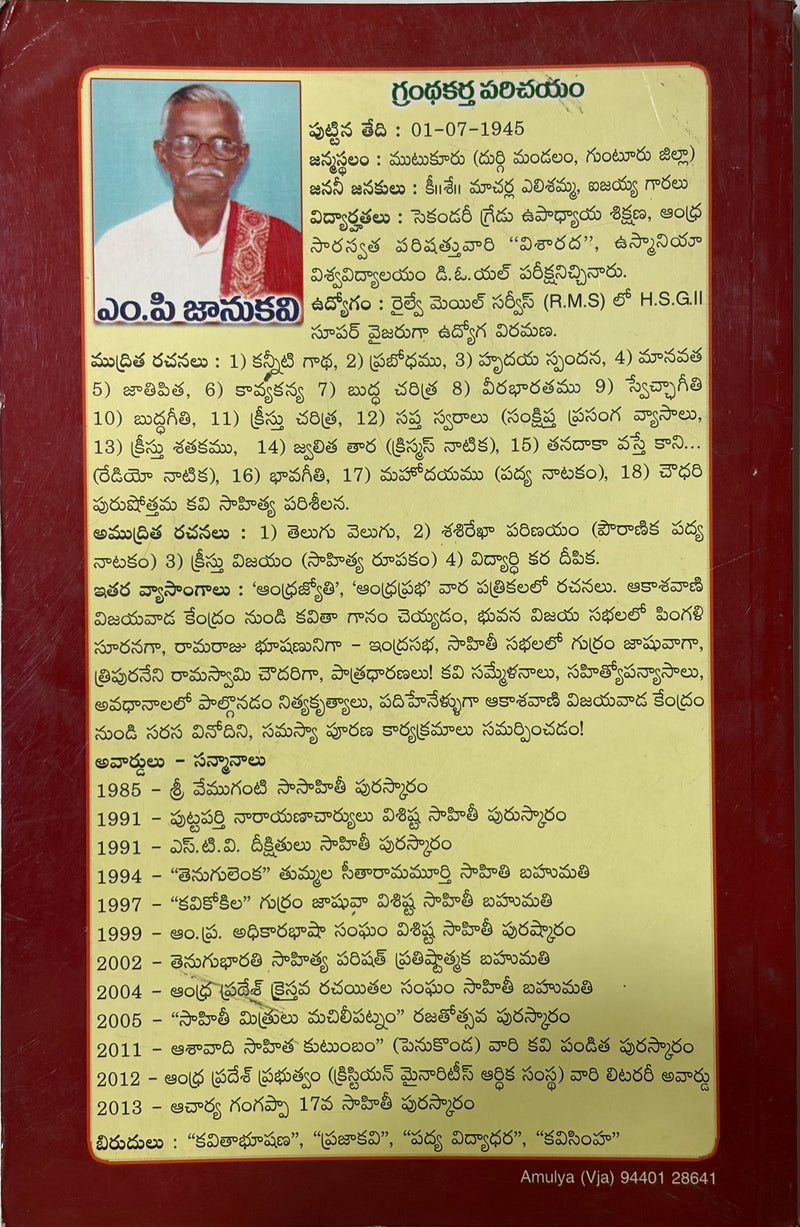 గ్రంథకర్త పరిచయం
పుట్టిన తేది : 01-07-1945
జన్మస్థలం : ముటుకూరు (దుర్గి మండలం, గుంటూరు జిల్లా)
జననీ జనకులు : కీ॥శే॥ మాచర్ల ఎలిశమ్మ, ఐజయ్య గారలు
విద్యార్హతలు : సెకండరీ గ్రేడు ఉపాధ్యాయ శిక్షణ, ఆంధ్ర
సారస్వత పరిషత్తువారి “విశారద”, ఉస్మానియా
విశ్వవిద్యాలయం డి.ఓ.యల్ పరీక్షనిచ్చినారు.
ఉద్యోగం : రైల్వే మెయిల్ సర్వీస్ (R.M.S) లో H.S.G.II
సూపర్ వైజరుగా ఉద్యోగ విరమణ.
ఎం.పి జానుకవి
ముద్రిత రచనలు : 1) కన్నీటి గాథ, 2) ప్రబోధము, 3) హృదయ స్పందన, 4) మానవత
5) జాతిపిత, 6) కావ్యకన్య 7) బుద్ధ చరిత్ర 8) వీరభారతము 9) స్వేచ్ఛాగీతి
10) బుద్ధగీతి, 11) క్రీస్తు చరిత్ర, 12) సప్త స్వరాలు (సంక్షిప్త ప్రసంగ వ్యాసాలు,
13) క్రీస్తు శతకము, 14) జ్వలిత తార (క్రిస్మస్ నాటిక), 15) తనదాకా వస్తే కాని...
(రేడియో నాటిక), 16) భావగీతి, 17) మహోదయము (పద్య నాటకం), 18) చౌధరి
పురుషోత్తమ కవి సాహిత్య పరిశీలన.
అముద్రిత రచనలు : 1) తెలుగు వెలుగు, 2) శశిరేఖా పరిణయం (పౌరాణిక పద్య
నాటకం) 3) క్రీస్తు విజయం (సాహిత్య రూపకం) 4) విద్యార్థి కర దీపిక.
ఇతర వ్యాసాంగాలు : ‘ఆంధ్రజ్యోతి’, ‘ఆంధ్రప్రభ’ వార పత్రికలలో రచనలు. ఆకాశవాణి
విజయవాడ కేంద్రం నుండి కవితా గానం చెయ్యడం, భువన విజయ సభలలో పింగళి
సూరనగా, రామరాజు భూషణునిగా – ఇంద్రసభ, సాహితీ సభలలో గుర్రం జాషువాగా,
త్రిపురనేని రామస్వామి చౌదరిగా, పాత్రధారణలు! కవి సమ్మేళనాలు, సహిత్యోపన్యాసాలు,
అవధానాలలో పాల్గొనడం నిత్యకృత్యాలు, పదిహేనేళ్ళుగా ఆకాశవాణి విజయవాడ కేంద్రం
నుండి సరస వినోదిని, సమస్యా పూరణ కార్యక్రమాలు సమర్పించడం!
అవార్డులు – సన్మానాలు
1985 – శ్రీ వేముగంటి సాసాహితీ పురస్కారం
1991 – పుట్టపర్తి నారాయణాచార్యులు విశిష్ట సాహితీ పురుస్కారం
1991 – ఎస్.టి.వి. దీక్షితులు సాహితీ పురస్కారం
1994 – “తెనుగులెంక” తుమ్మల సీతారామమూర్తి సాహితి బహుమతి
1997 – “కవికోకిల” గుర్రం జాషువా విశిష్ట సాహితీ బహుమతి
1999 – ఆం.ప్ర. అధికారభాషా సంఘం విశిష్ట సాహితీ పురష్కారం
2002 – తెనుగుభారతి సాహిత్య పరిషత్ ప్రతిష్టాత్మక బహుమతి
2004 – ఆంధ్ర ప్రదేశ్ క్రైస్తవ రచయితల సంఘం సాహితీ బహుమతి
2005 – “సాహితీ మిత్రులు మచిలీపట్నం” రజతోత్సవ పురస్కారం
2011 – ఆశావాది సాహిత కుటుంబం” (పెనుకొండ) వారి కవి పండిత పురస్కారం
2012 – ఆంధ్ర ప్రదేశ్ ప్రభుత్వం (క్రిస్టియన్ మైనారిటీస్ ఆర్థిక సంస్థ) వారి లిటరరీ అవార్డు
2013 – ఆచార్య గంగప్పా 17వ సాహితీ పురస్కారం
బిరుదులు : “కవితాభూషణ”, “ప్రజాకవి”, “పద్య విద్యాధర”, “కవిసింహ”
Amulya (Vja) 94401 28641